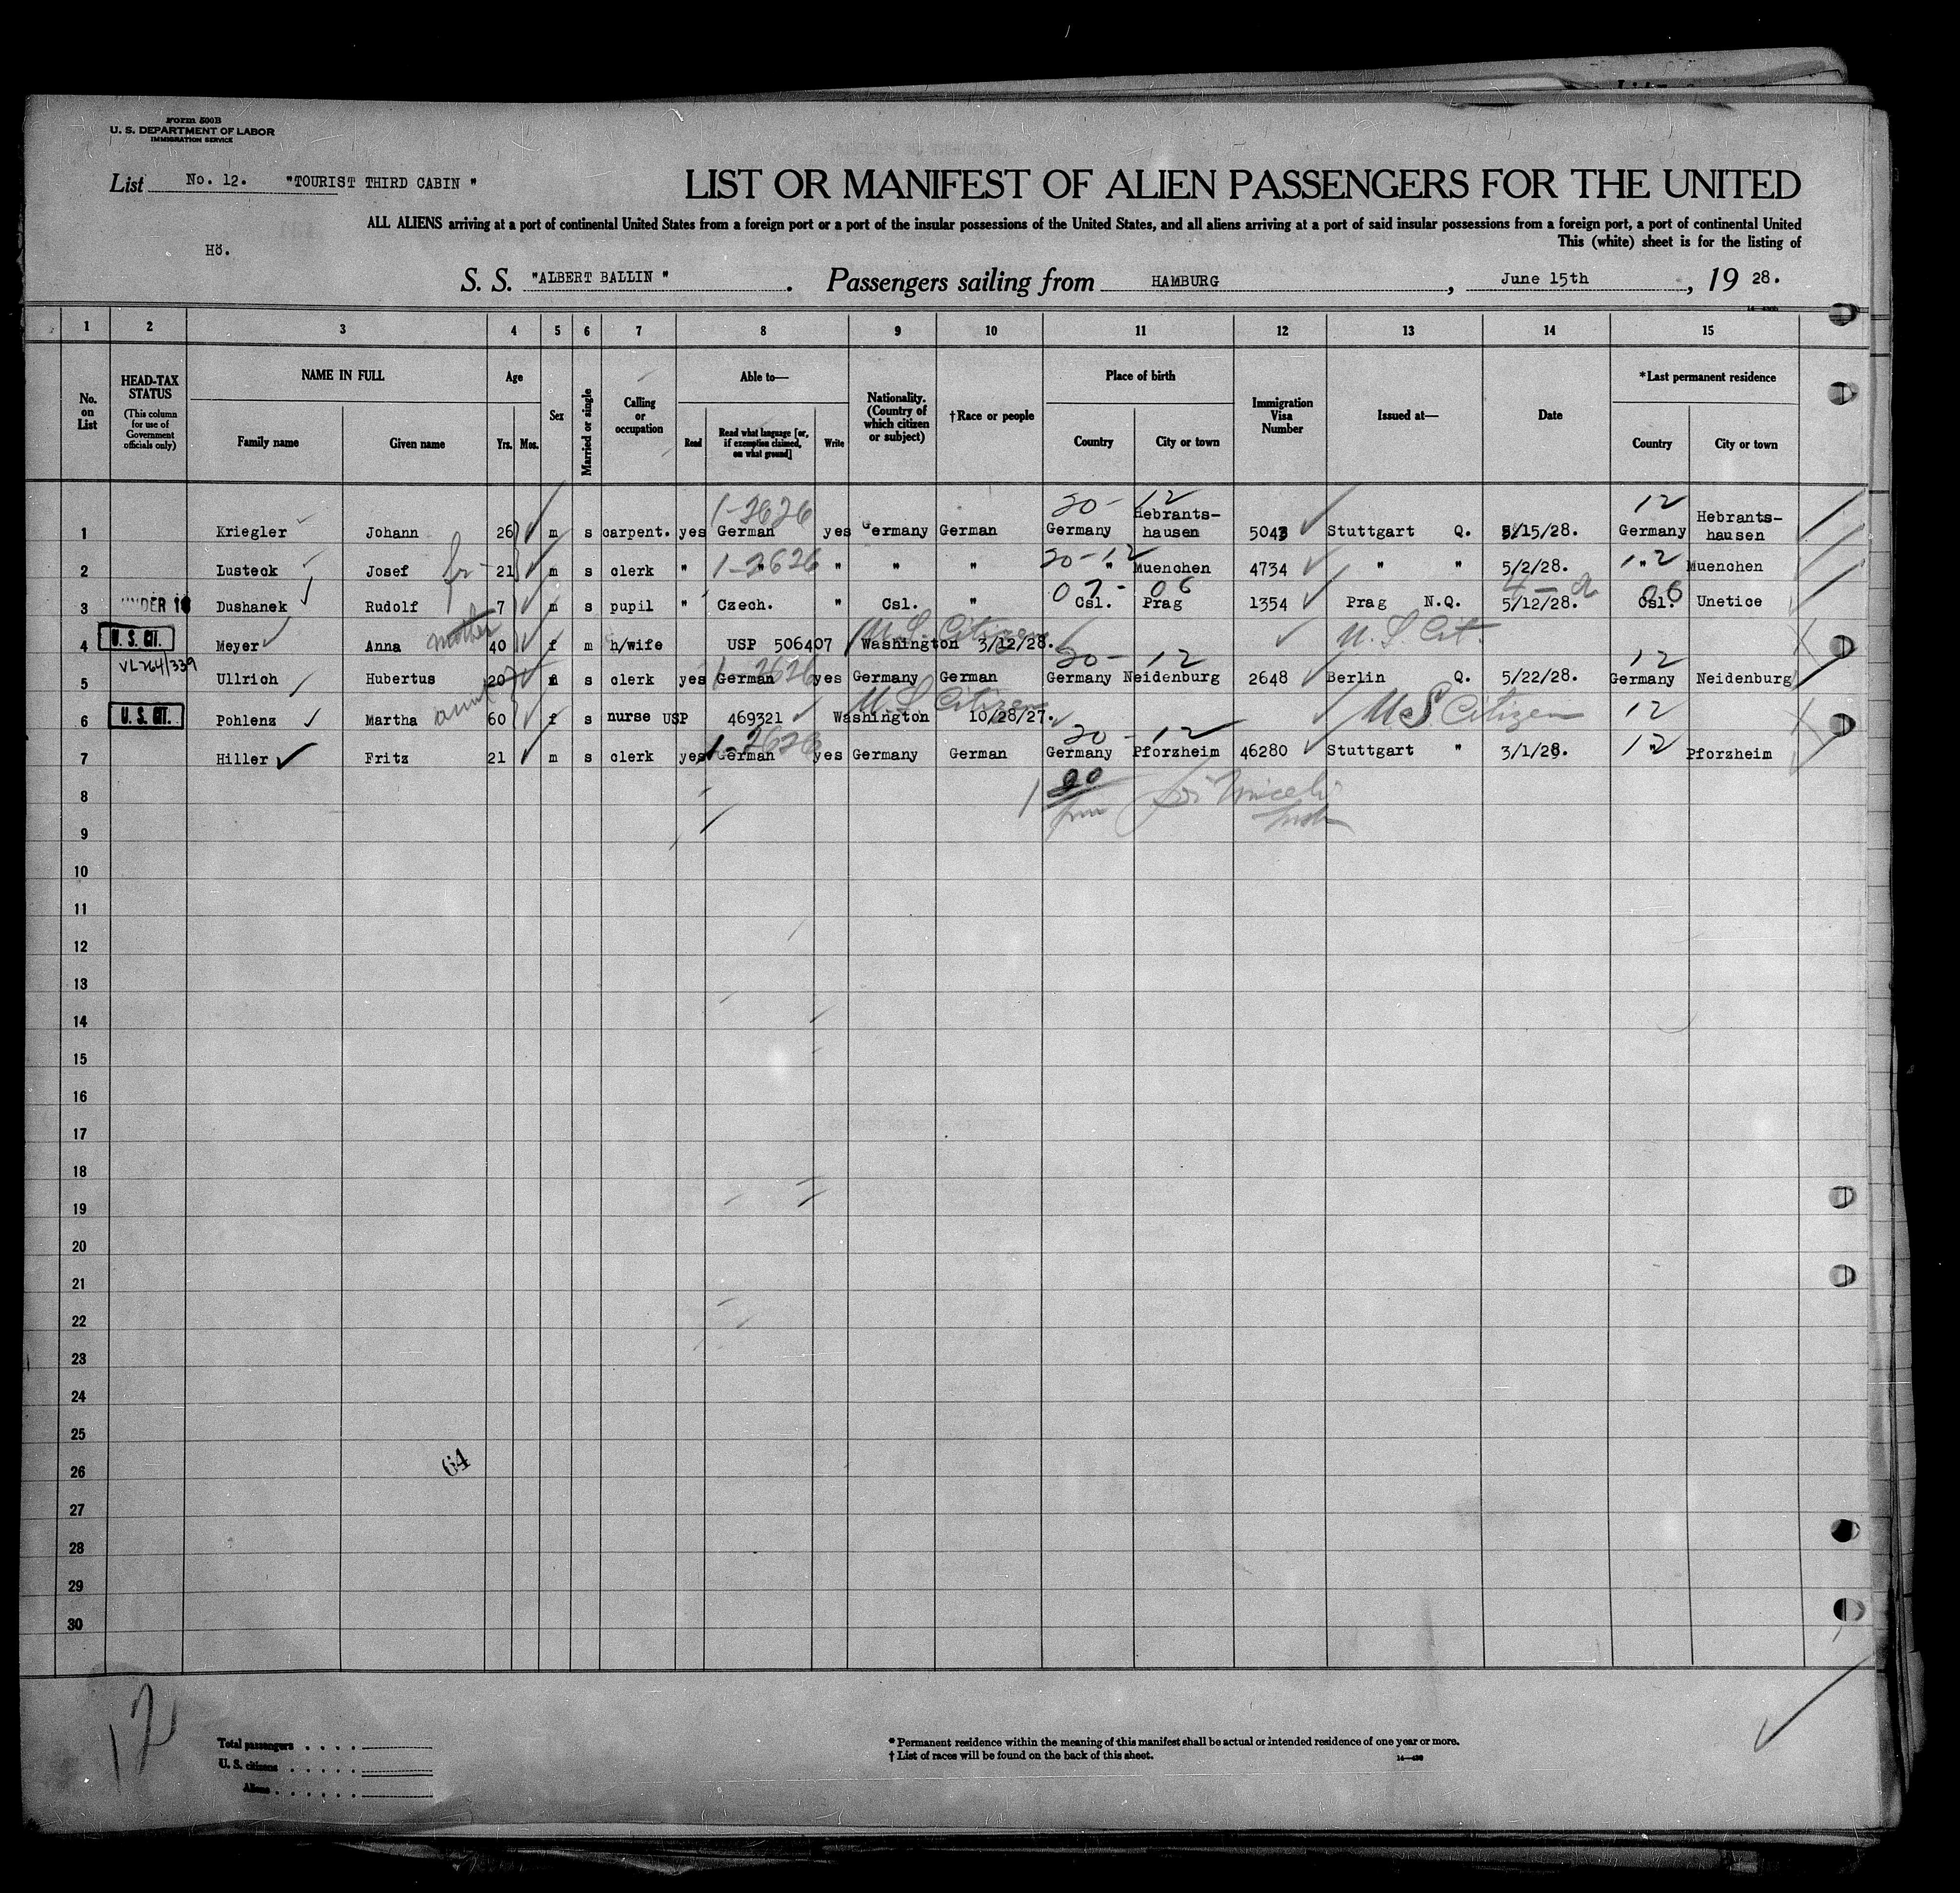 Form 500B
U. S. DEPARTMENT OF LABOR
IMMIGRATION SERVICE
List No. 12. "TOURIST THIRD CABIN "
LIST OR MANIFEST OF ALIEN PASSENGERS FOR THE UNITED
ALL ALIENS arriving at a port of continental United States from a foreign port or a port of the insular possessions of the United States, and all aliens arriving at a port of said insular possessions from a foreign port, a port of continental United
This (white) sheet is for the listing of
Hö.
S. S. "ALBERT BALLIN ". Passengers sailing from HAMBURG, June 15th, 19 28.
1 2 3 4 5 6 7 8 9 10 11 12 13 14 15
No. on List
HEAD-TAX STATUS (This column for use of Government officials only)
NAME IN FULL
Family name Given name
Age
Yrs. Mos.
Sex
Married or single
Calling or occupation
Able to—
Read Read what language [or, if exemption claimed, on what ground] Write
Nationality. (Country of which citizen or subject)
†Race or people
Place of birth
Country City or town
Immigration Visa Number
Issued at—
Date
*Last permanent residence
Country City or town
1-2626 20- 12 12
1 Kriegler Johann 26 m s carpent. yes German yes Germany German Germany Hebrants-hausen 5043 Stuttgart Q. 5/15/28. Germany Hebrants-hausen
1-2626 20-12 12
2 Lusteck Josef 21 m s clerk " " " " " " Muenchen 4734 " " 5/2/28. " Muenchen
07- 06 06
3 UNDER 16 Dushanek Rudolf 7 m s pupil " Czech. " Csl. " Csl. Prag 1354 Prag N.Q. 5/12/28. Csl. Unetice
U. S. Citizen U. S. Cit.
4 U. S. CIT. Meyer Anna mother 40 f m h/wife USP 506407 Washington 3/12/28.
VL264/339 1-2626 20- 12 12
5 Ullrich Hubertus 20 m s clerk yes German yes Germany German Germany Neidenburg 2648 Berlin Q. 5/22/28. Germany Neidenburg
U S Citizen U S Citizen 12
6 U. S. CIT. Pohlenz Martha aunt 60 f s nurse USP 469321 Washington 10/28/27.
1-2626 20-12 12
7 Hiller Fritz 21 m s clerk yes German yes Germany German Germany Pforzheim 46280 Stuttgart " 3/1/28. " Pforzheim
8
9
10
11
12
13
14
15
16
17
18
19
20
21
22
23
24
25
64
26
27
28
29
30
Total passengers
U. S. citizens
Aliens
* Permanent residence within the meaning of this manifest shall be actual or intended residence of one year or more.
† List of races will be found on the back of this sheet.